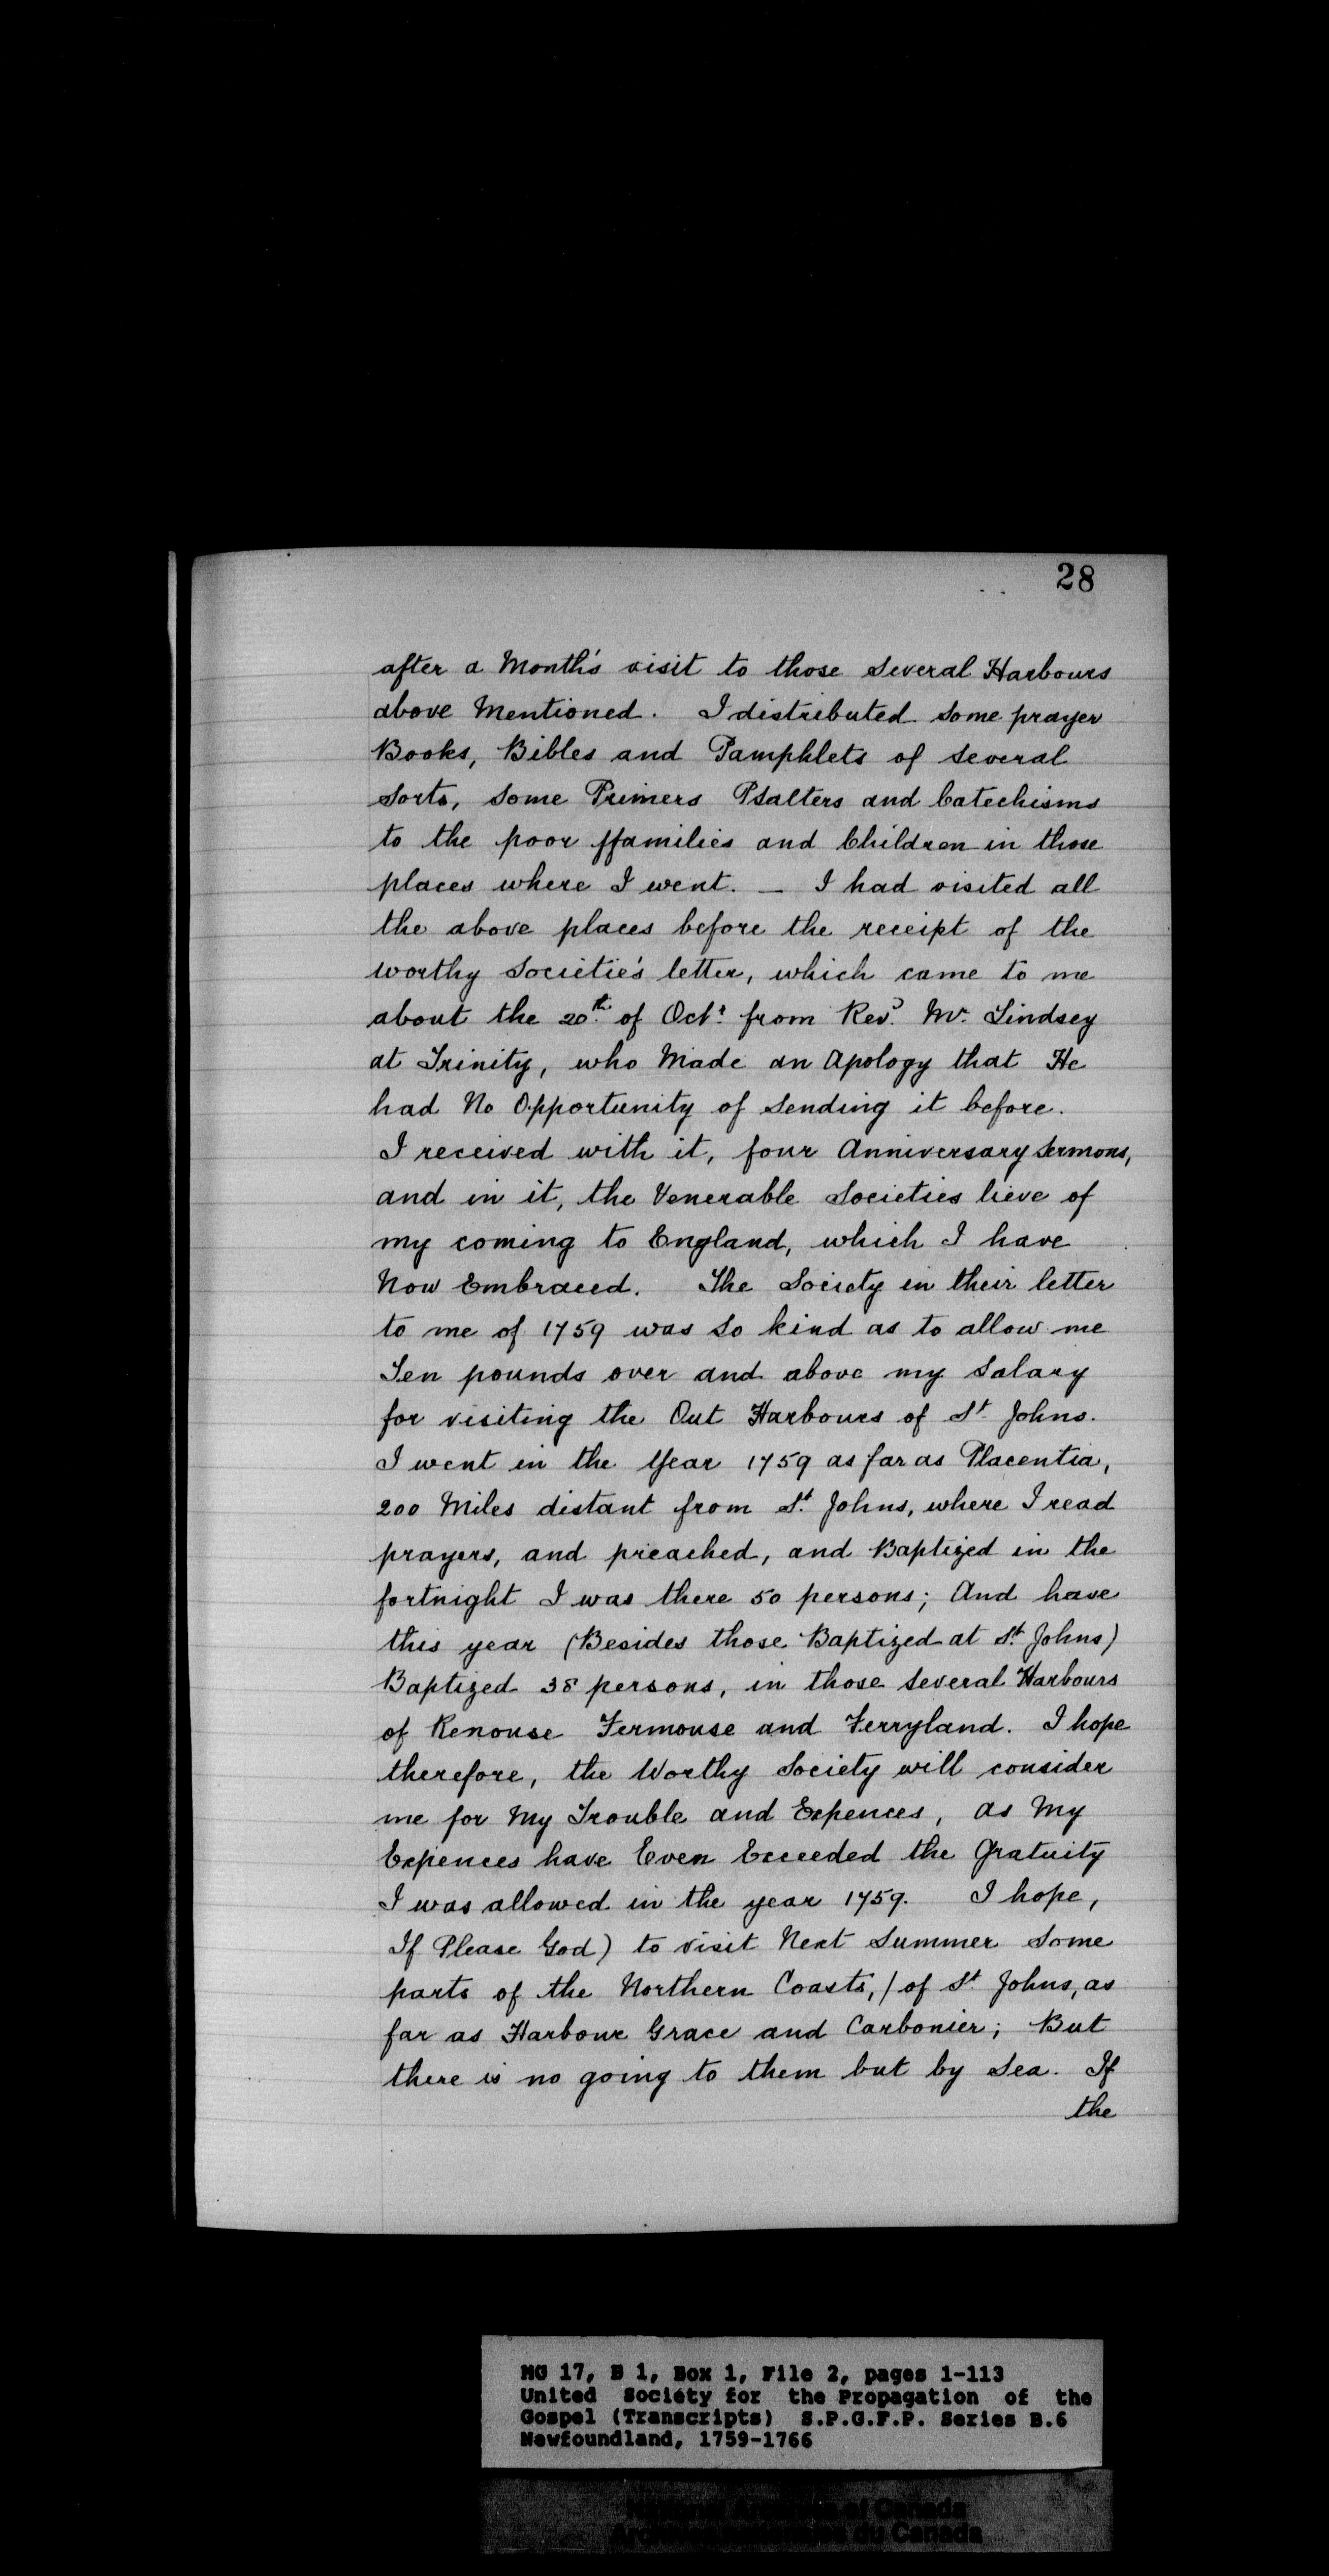 28
after a Month's visit to those several Harbours
above Mentioned. I distributed some prayer
Books, Bibles and Pamphlets of several
Sorts, some Primers Psalters and Catechisms
to the poor ffamilies and Children in those
places where I went. — I had visited all
the above places before the receipt of the
worthy Societie's letter, which came to me
about the 20th. of Octr. from Revd. Mr. Lindsey
at Trinity, who Made an Apology that He
had No Opportunity of sending it before.
I received with it, four Anniversary Sermons,
and in it, the Venerable Societies lieve of
my coming to England, which I have
Now Embraced. The Society in their letter
to me of 1759 was so kind as to allow me
Ten pounds over and above my Salary
for visiting the Out Harbours of St. Johns.
I went in the Year 1759 as far as Placentia,
200 Miles distant from St. Johns, where I read
prayers, and preached, and Baptized in the
fortnight I was there 50 persons; And have
this year (Besides those Baptized at St. Johns)
Baptized 38 persons, in those several Harbours
of Renouse Fermouse and Ferryland. I hope
therefore, the Worthy Society will consider
me for My Trouble and Expences, as My
Expences have Even Exceeded the Gratuity
I was allowed in the year 1759. I hope,
If Please God) to visit Next Summer some
parts of the Northern Coasts, / of St. Johns, as
far as Harbour Grace and Carbonier; But
there is no going to them but by Sea. If
the
MG 17, B 1, Box 1, File 2, pages 1-113
United Society for the Propagation of the
Gospel (Transcripts) S.P.G.F.P. Series B.6
Newfoundland, 1759-1766
National Archives of Canada
Archives nationales du Canada